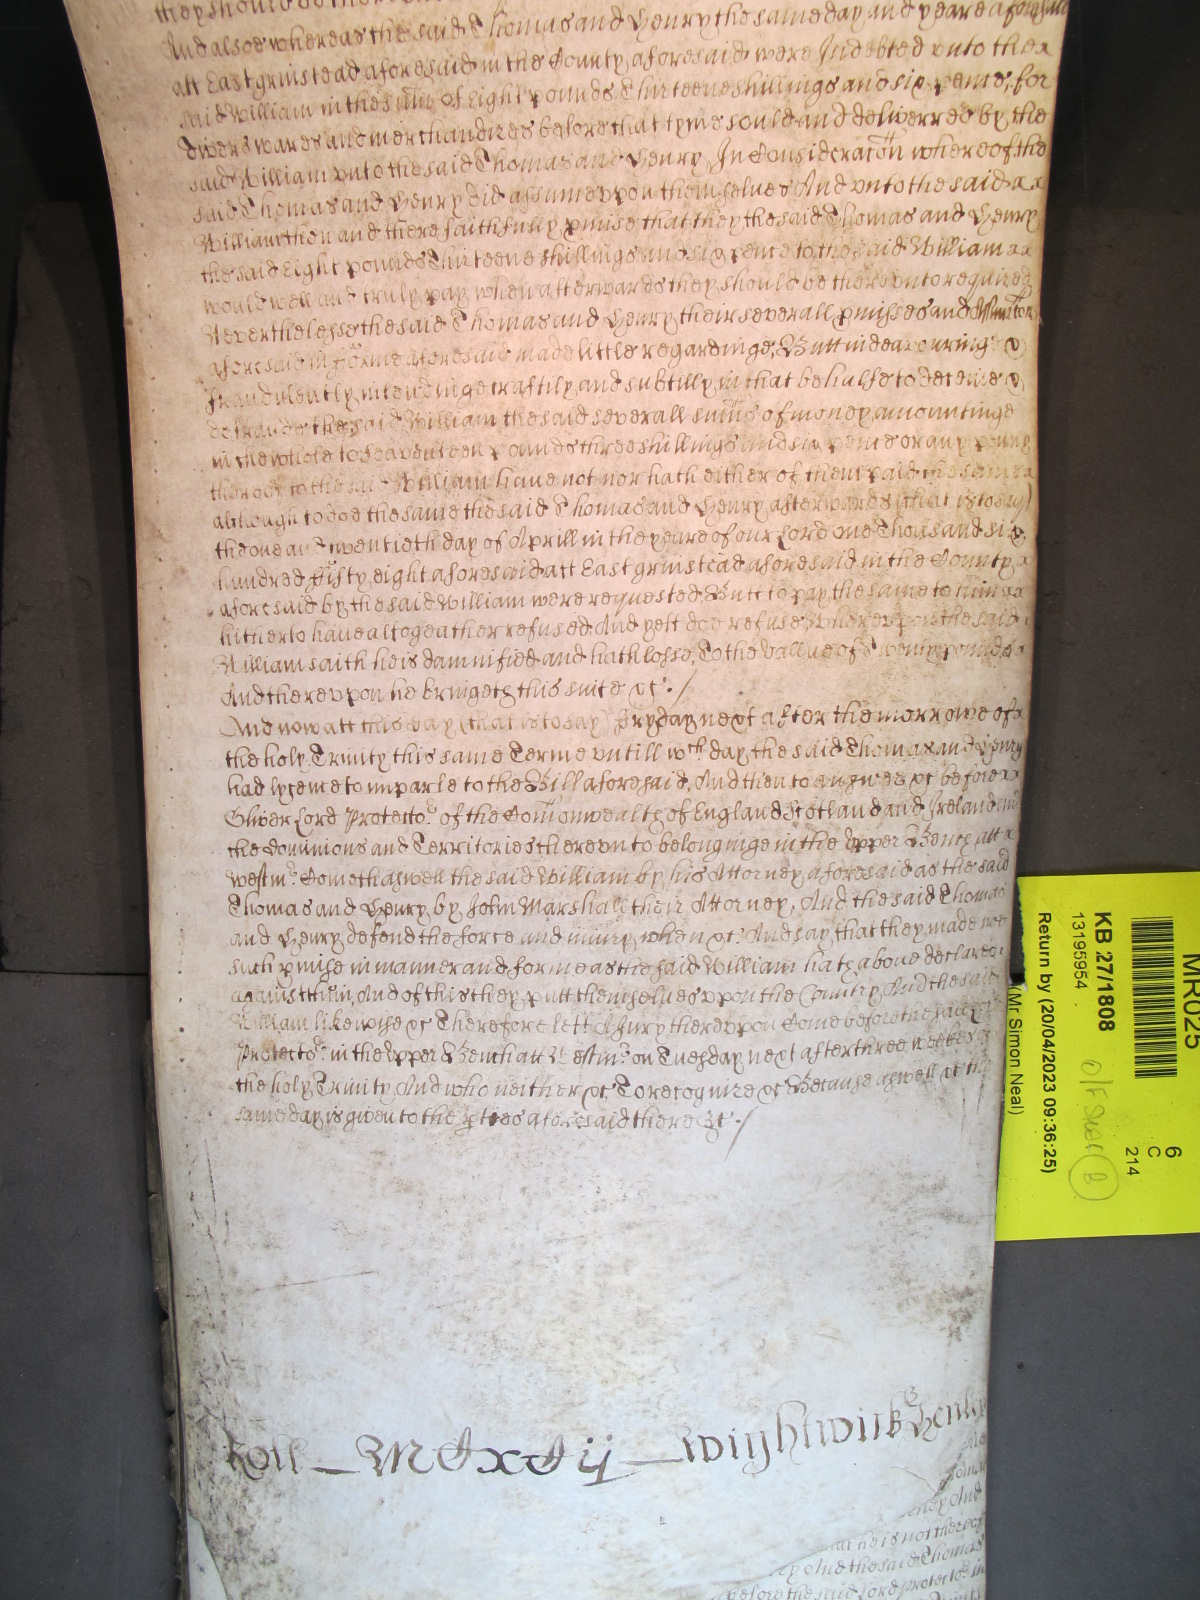 they should be there
And alsoe whereas the said Thomas and Henry the same day and yeare aforesaid
att Eastgrinstead aforesaid in the County aforesaid were Indebted vnto the
said William in the sum̃ of Eight pounds Thirteene shillings and six pence, for
divers wares and merchandizes before that tyme sould and deliverred by the
said William vnto the said Thomas and Henry, In Consideratõn whereof the
said Thomas and Henry did assume vpon themselves And vnto the said
William then and there faithfully pmise that they the said Thomas and Henry
the said Eight pounds Thirteene shillings and six pence to the said William
would well and truly pay when afterwards they should be therevnto required
Neverthelesse the said Thomas and Henry their severall pmisses and
aforesaid in forme aforesaid made little regardinge, Butt indeavouringe &
fraudulently intendinge craftily and subtilly in that behalfe to deceive &
defraude the said William the said severall sum̃s of money amountinge
in the whole to Seaventeen pounds three shillings and six pence or any penny
thereof to the said William have not nor hath either of them paid the same
although to doe the same the said Thomas and Henry afterwards (that is to say)
the one and twentieth day of Aprill in the yeare of our Lord one Thousand six
hundred fifty eight aforesaid att Eastgrinstead aforesaid in the County
aforesaid by the said William were requested, Butt to pay the same to him
hitherto have altogeather refused, And yett doe refuse, Wherevpon the said
William saith he is damnified and hath losse, To the vallue of Twenty pounds
And therevpon he bringeth this suite &c̃./
And now att this day (that is to say) Fryday next after the morrowe of
the holy Trinity this same Terme vntill wch day the said Thomas and Henry
had lycence to imparle to the Bill aforesaid, And then to answer &c before
Oliver Lord Protector of the Com̃onwealth of England Scotland and Ireland and
the dominions and Territories therevnto belonginge in the vpper Bench att
Westmr Cometh aswell the said William by his Attorney aforesaid as the said
Thomas and Henry by John Marshall their Attorney, And the said Thomas
and Henry defend the force and iniury when &c. And say that they made not
such pmise in manner and forme as the said William hath above declared
against them, And of this they putt themselves vpon the Country And the said
William likewise &c Therefore lett A Jury therevpon Come before the said Lord
Protector in the vpper Bench att Westmr on Tuesday next after three weekes of
the holy Trinity And who neither &c To recognize &c Because aswell &c the
same day is given to the pties aforesaid there &c./
Roll MDxDij Wightwick
he is not thereof
And the said Thomas
before the said Lord protector in
MR025
KB 27/1808
13195954
Return by (20/04/2023 09:36:25)
(Mr Simon Neal)
6
C
214
B